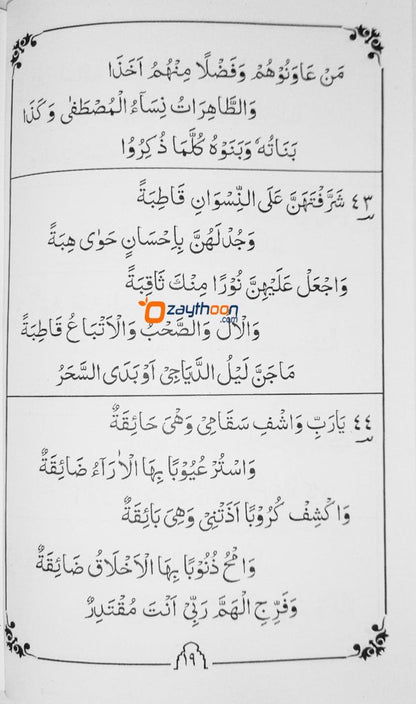 مَنْ عَاوَنُوْهُمْ وَفَضْلًا مِنْهُمُ اَخَذَا
وَالطَّاهِرَاتُ نِسَاءُ الْمُصْطَفٰى وَكَذَا
بَنَاتُهُ وَبَنَوْهُ كُلَّمَا ذُكِرُوْا
٤٣ شَرَّفْتَهُنَّ عَلَى النِّسْوَانِ قَاطِبَةً
وَجُدْ لَهُنَّ بِاِحْسَانٍ حَوٰى هِبَةً
وَاجْعَلْ عَلَيْهِنَّ نُوْرًا مِنْكَ ثَاقِبَةً
zaythoon
.com
وَالْاٰلِ وَالصَّحْبُ وَالْاَتْبَاعُ قَاطِبَةً
مَاجَنَّ لَيْلُ الدَّيَاجِيْ اَوْبَدَى السَّحَرُ
٤٤ يَارَبِّ وَاشْفِ سَقَامِيْ وَهْيَ حَائِقَةٌ
وَاسْتُرْ عُيُوْبًا بِهَا الْاٰرَاءُ ضَائِقَةٌ
وَاكْشِفْ كُرُوْبًا اَذَتْنِيْ وَهْيَ بَائِقَةٌ
وَامْحُ ذُنُوْبًا بِهَا الْاَخْلَاقُ ضَائِقَةٌ
وَفَرِّجِ الْهَمَّ رَبِّيْ اَنْتَ مُقْتَدِرٌ
١٩